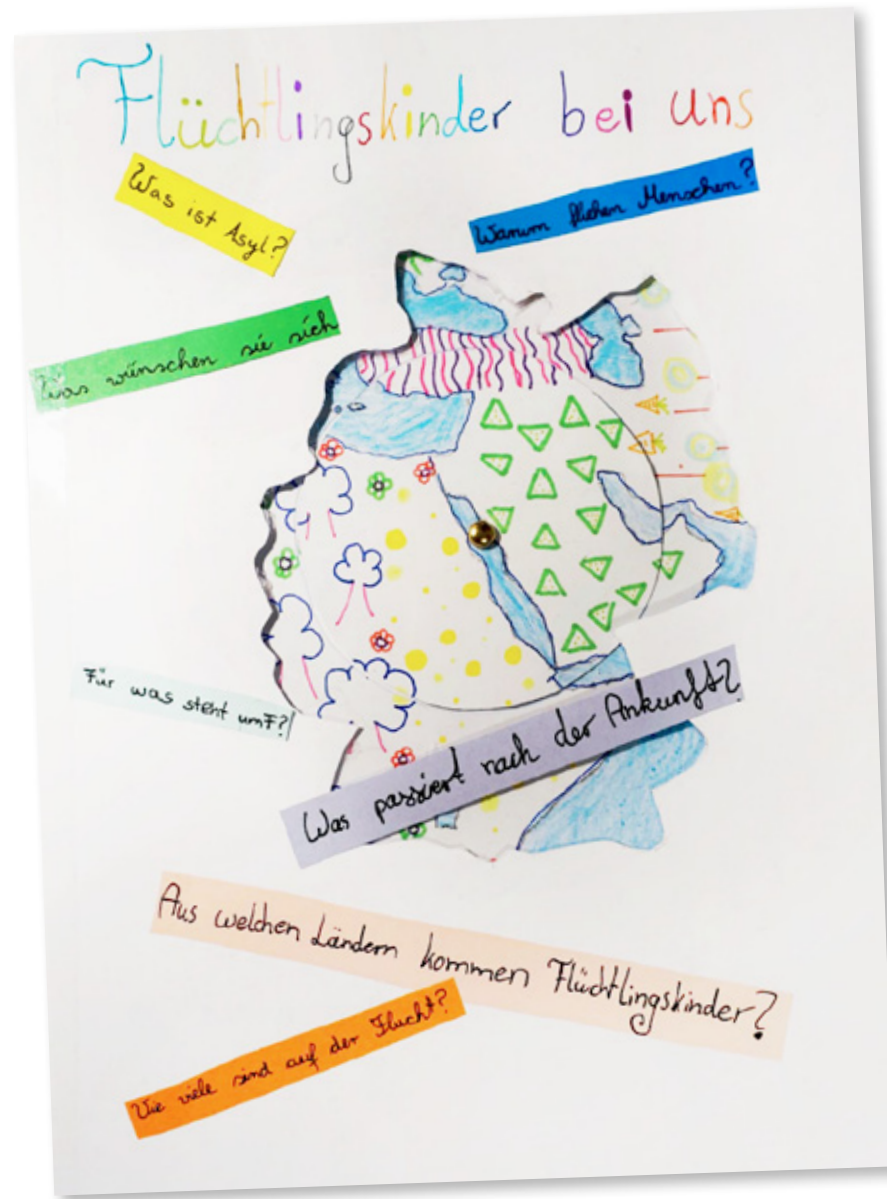 Flüchtlingskinder bei uns
Was ist Asyl?
Warum fliehen Menschen?
Was wünschen sie sich
Für was steht umF?
Was passiert nach der Ankunft?
Aus welchen Ländern kommen Flüchtlingskinder?
Wie viele sind auf der Flucht?